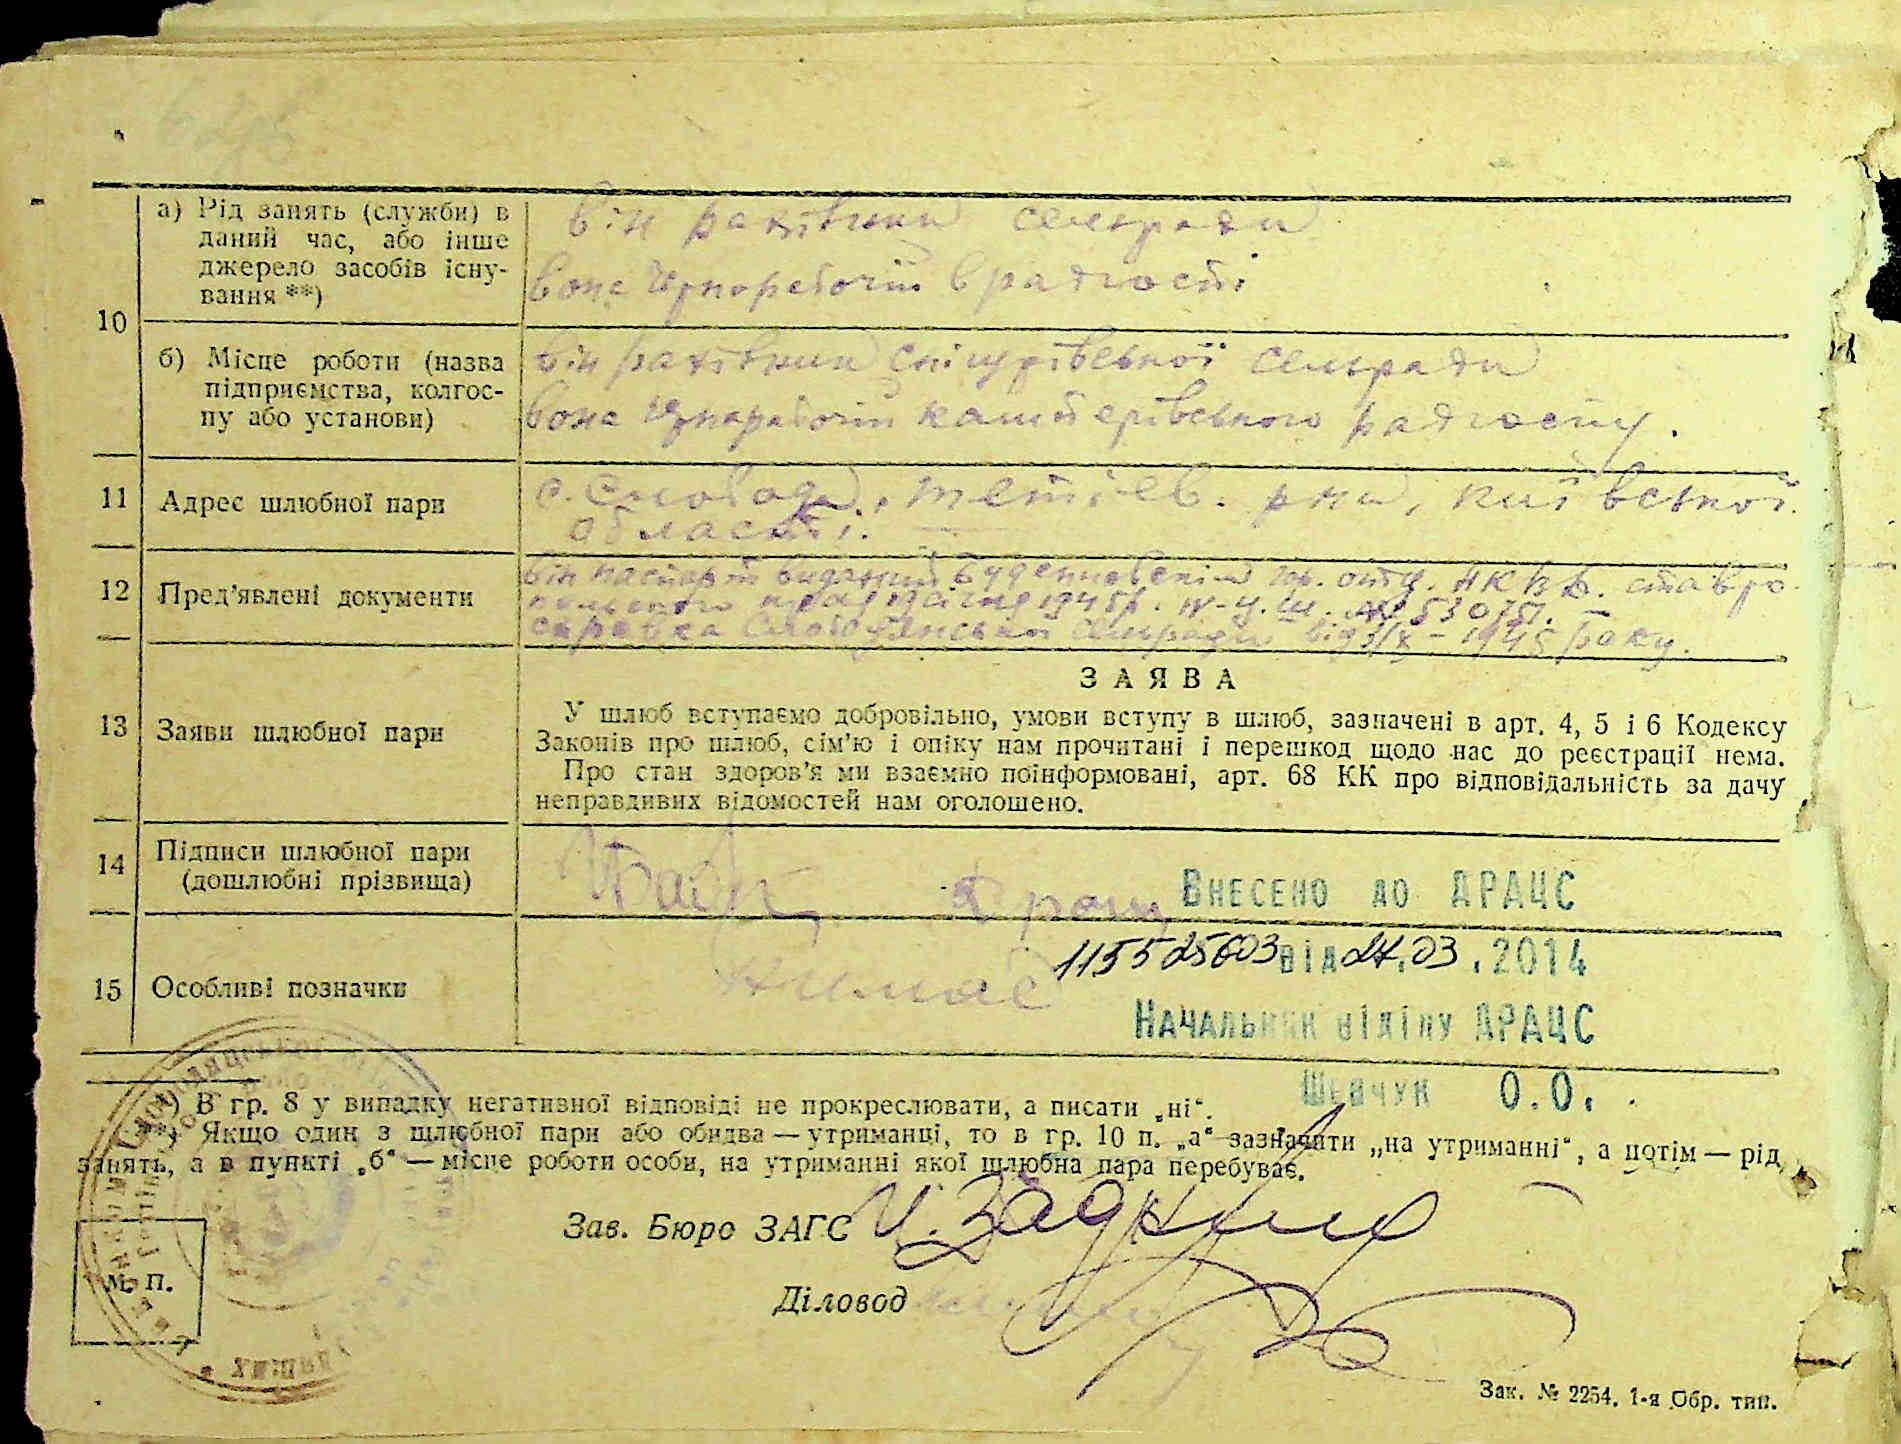 10
а) Рід занять (служби) в
даний час, або інше
джерело засобів існу-
вання **)
він рахівник сельради
вона чорноробочій в радгоспі
б) Місце роботи (назва
підприємства, колгос-
пу або установи)
він рахівник сельради
вона чорноробочій радгоспу.
11
Адрес шлюбної пари
с. Слобода, Тетіев. р-на, київської
області.
12
Пред’явлені документи
він паспорт виданий Буденновским гор. отд. НКВД. ставро-
польского 1945 р. IV-у.ш. № 530751. —
справка Слободянської сельради від 1945 року.
13
Заяви шлюбної пари
ЗАЯВА
У шлюб вступаємо добровільно, умови вступу в шлюб, зазначені в арт. 4, 5 і 6 Кодексу
Законів про шлюб, сім’ю і опіку нам прочитані і перешкод щодо нас до реєстрації нема.
Про стан здоров’я ми взаємно поінформовані, арт. 68 КК про відповідальність за дачу
неправдивих відомостей нам оголошено.
14
Підписи шлюбної пари
(дошлюбні прізвища)
Внесено до ДРАЦС
115525603 від 24.03.2014
15
Особливі позначки
Немає
Начальник відділу ДРАЦС
Шевчук О.О.
*) В гр. 8 у випадку негативної відповіді не прокреслювати, а писати „ні“.
**) Якщо один з шлюбної пари або обидва — утриманці, то в гр. 10 п. „а“ зазначити „на утриманні“, а потім — рід
занять, а в пункті „б“ — місце роботи особи, на утриманні якої шлюбна пара перебуває.
Зав. Бюро ЗАГС
Діловод
М. П.
Зак. № 2254. 1-я Обр. тип.